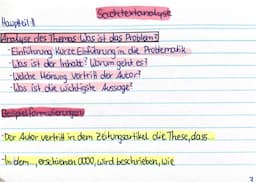 Sachtextanalyse
Hauptteil:
Analyse des Themas: Was ist das Problem?
- Einführung kurze Einführung in die Problematik
- Was ist der Inhalt? Worum geht es?
- Welche Meinung vertritt der Autor?
- Was ist die wichtigste Aussage?
Beispielformulierungen
- Der Autor vertritt in dem Zeitungsartikel die These, dass...
- In dem..., erschienen 0000, wird beschrieben, wie
3